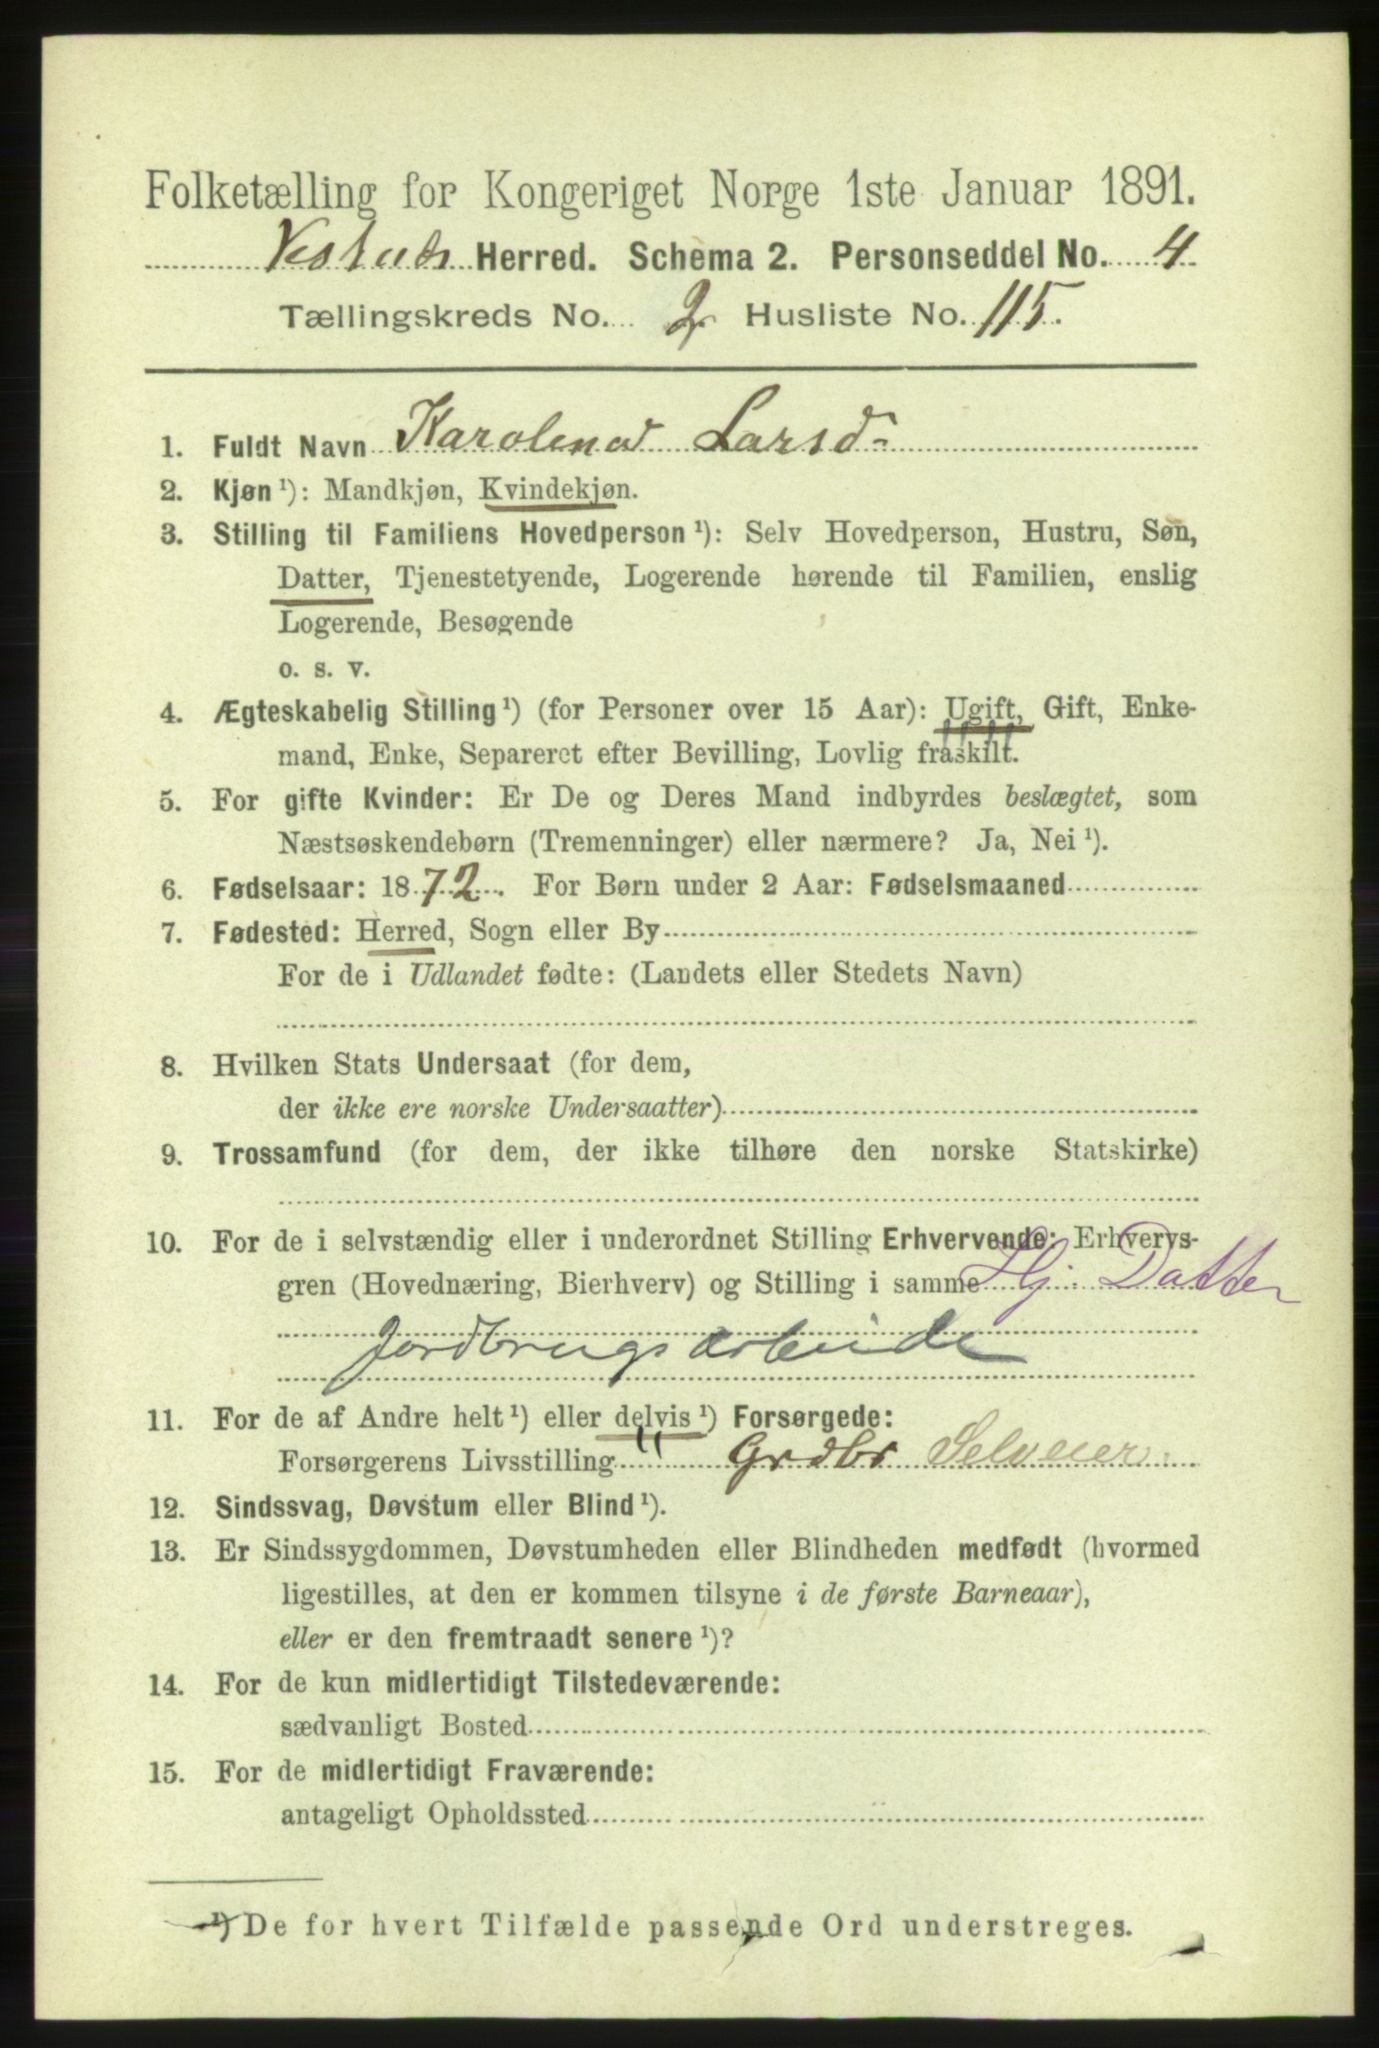 Folketælling for Kongeriget Norge 1ste Januar 1891.
Herred. Schema 2. Personseddel No. 4
Tællingskreds No. 2 Husliste No. 115.
1. Fuldt Navn Karolena Larsd
2. Kjøn ¹): Mandkjøn, Kvindekjøn.
3. Stilling til Familiens Hovedperson ¹): Selv Hovedperson, Hustru, Søn,
Datter, Tjenestetyende, Logerende hørende til Familien, enslig
Logerende, Besøgende
o. s. v.
4. Ægteskabelig Stilling ¹) (for Personer over 15 Aar): Ugift, Gift, Enke-
mand, Enke, Separeret efter Bevilling, Lovlig fraskilt.
5. For gifte Kvinder: Er De og Deres Mand indbyrdes beslægtet, som
Næstsøskendebørn (Tremenninger) eller nærmere? Ja, Nei ¹).
6. Fødselsaar: 1872. For Børn under 2 Aar: Fødselsmaaned
7. Fødested: Herred, Sogn eller By
For de i Udlandet fødte: (Landets eller Stedets Navn)
8. Hvilken Stats Undersaat (for dem,
der ikke ere norske Undersaatter)
9. Trossamfund (for dem, der ikke tilhøre den norske Statskirke)
10. For de i selvstændig eller i underordnet Stilling Erhvervende: Erhvervs-
gren (Hovednæring, Bierhverv) og Stilling i samme Hj. Datter
Jordbrugsarbeide
11. For de af Andre helt ¹) eller delvis ¹) Forsørgede:
Forsørgerens Livsstilling Grdbr Selveier
12. Sindssvag, Døvstum eller Blind ¹).
13. Er Sindssygdommen, Døvstumheden eller Blindheden medfødt (hvormed
ligestilles, at den er kommen tilsyne i de første Barneaar),
eller er den fremtraadt senere ¹)?
14. For de kun midlertidigt Tilstedeværende:
sædvanligt Bosted
15. For de midlertidigt Fraværende:
antageligt Opholdssted
¹) De for hvert Tilfælde passende Ord understreges.